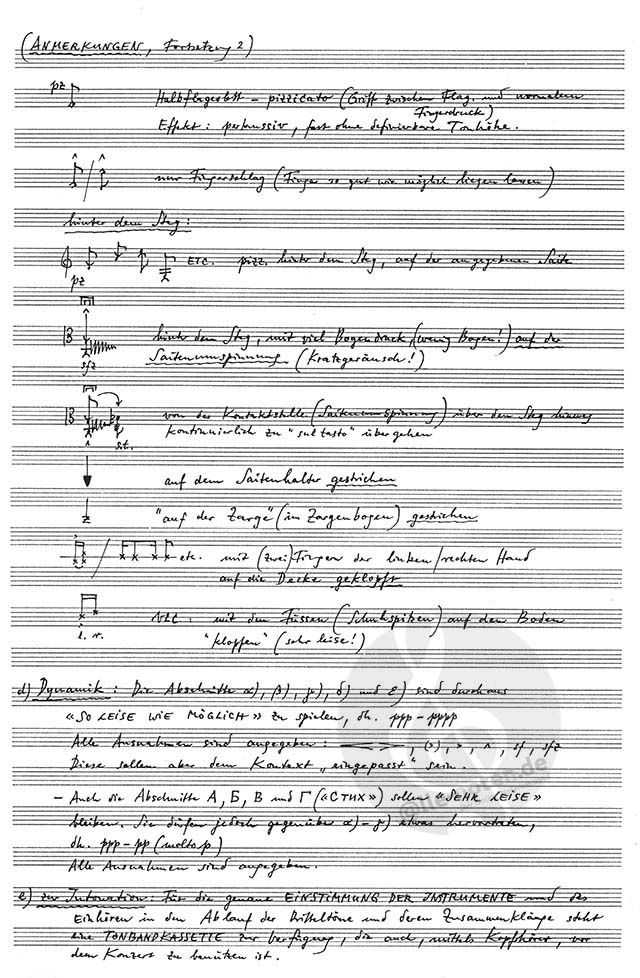 (ANMERKUNGEN, Fortsetzung 2)
pz Halbflageolett – pizzicato (Griff zwischen Flag. und normalem
Fingerdruck)
Effekt: perkussiv, fast ohne definierbare Tonhöhe.
nur Fingerschlag (Finger so gut wie möglich liegen lassen)
hinter dem Steg:
ETC. pizz. hinter dem Steg, auf der angegebenen Saite
pz
hinter dem Steg, mit viel Bogendruck, (wenig Bogen!) auf der
Saitenumspinnung (Kratzgeräusch!)
sfz
von der Kontaktstelle (Saitenumspinnung) über den Steg hinweg
kontinuierlich zu "sul tasto" übergehen
s.t.
auf dem Saitenhalter gestrichen
"auf der Zarge" (im Zargenbogen) gestrichen
etc. mit (zwei) Fingern der linken/rechten Hand
auf die Decke geklopft
VLC: mit den Füssen (Schuhspitzen) auf den Boden
l. r. "klopfen" (sehr leise!)
d) Dynamik: Die Abschnitte α), β), γ), δ) und ε) sind durchaus
«SO LEISE WIE MÖGLICH» zu spielen, dh. ppp–pppp
Alle Ausnahmen sind angegeben: < >, (>), >, ^, sf, sfz
Diese sollen aber dem Kontext „eingepasst" sein.
– Auch die Abschnitte А, Б, В und Г («СТИХ») sollen «SEHR LEISE»
bleiben. Sie dürfen jedoch gegenüber α)–γ) etwas hervortreten,
dh. ppp–pp (molto p)
Alle Ausnahmen sind angegeben.
@Alle-noten.de
e) zur Intonation: Für die genaue EINSTIMMUNG DER INSTRUMENTE und das
Einhören in den Ablauf der Dritteltöne und deren Zusammenklänge steht
eine TONBANDKASSETTE zur Verfügung, die auch, mittels Kopfhörer, vor
dem Konzert zu benützen ist.